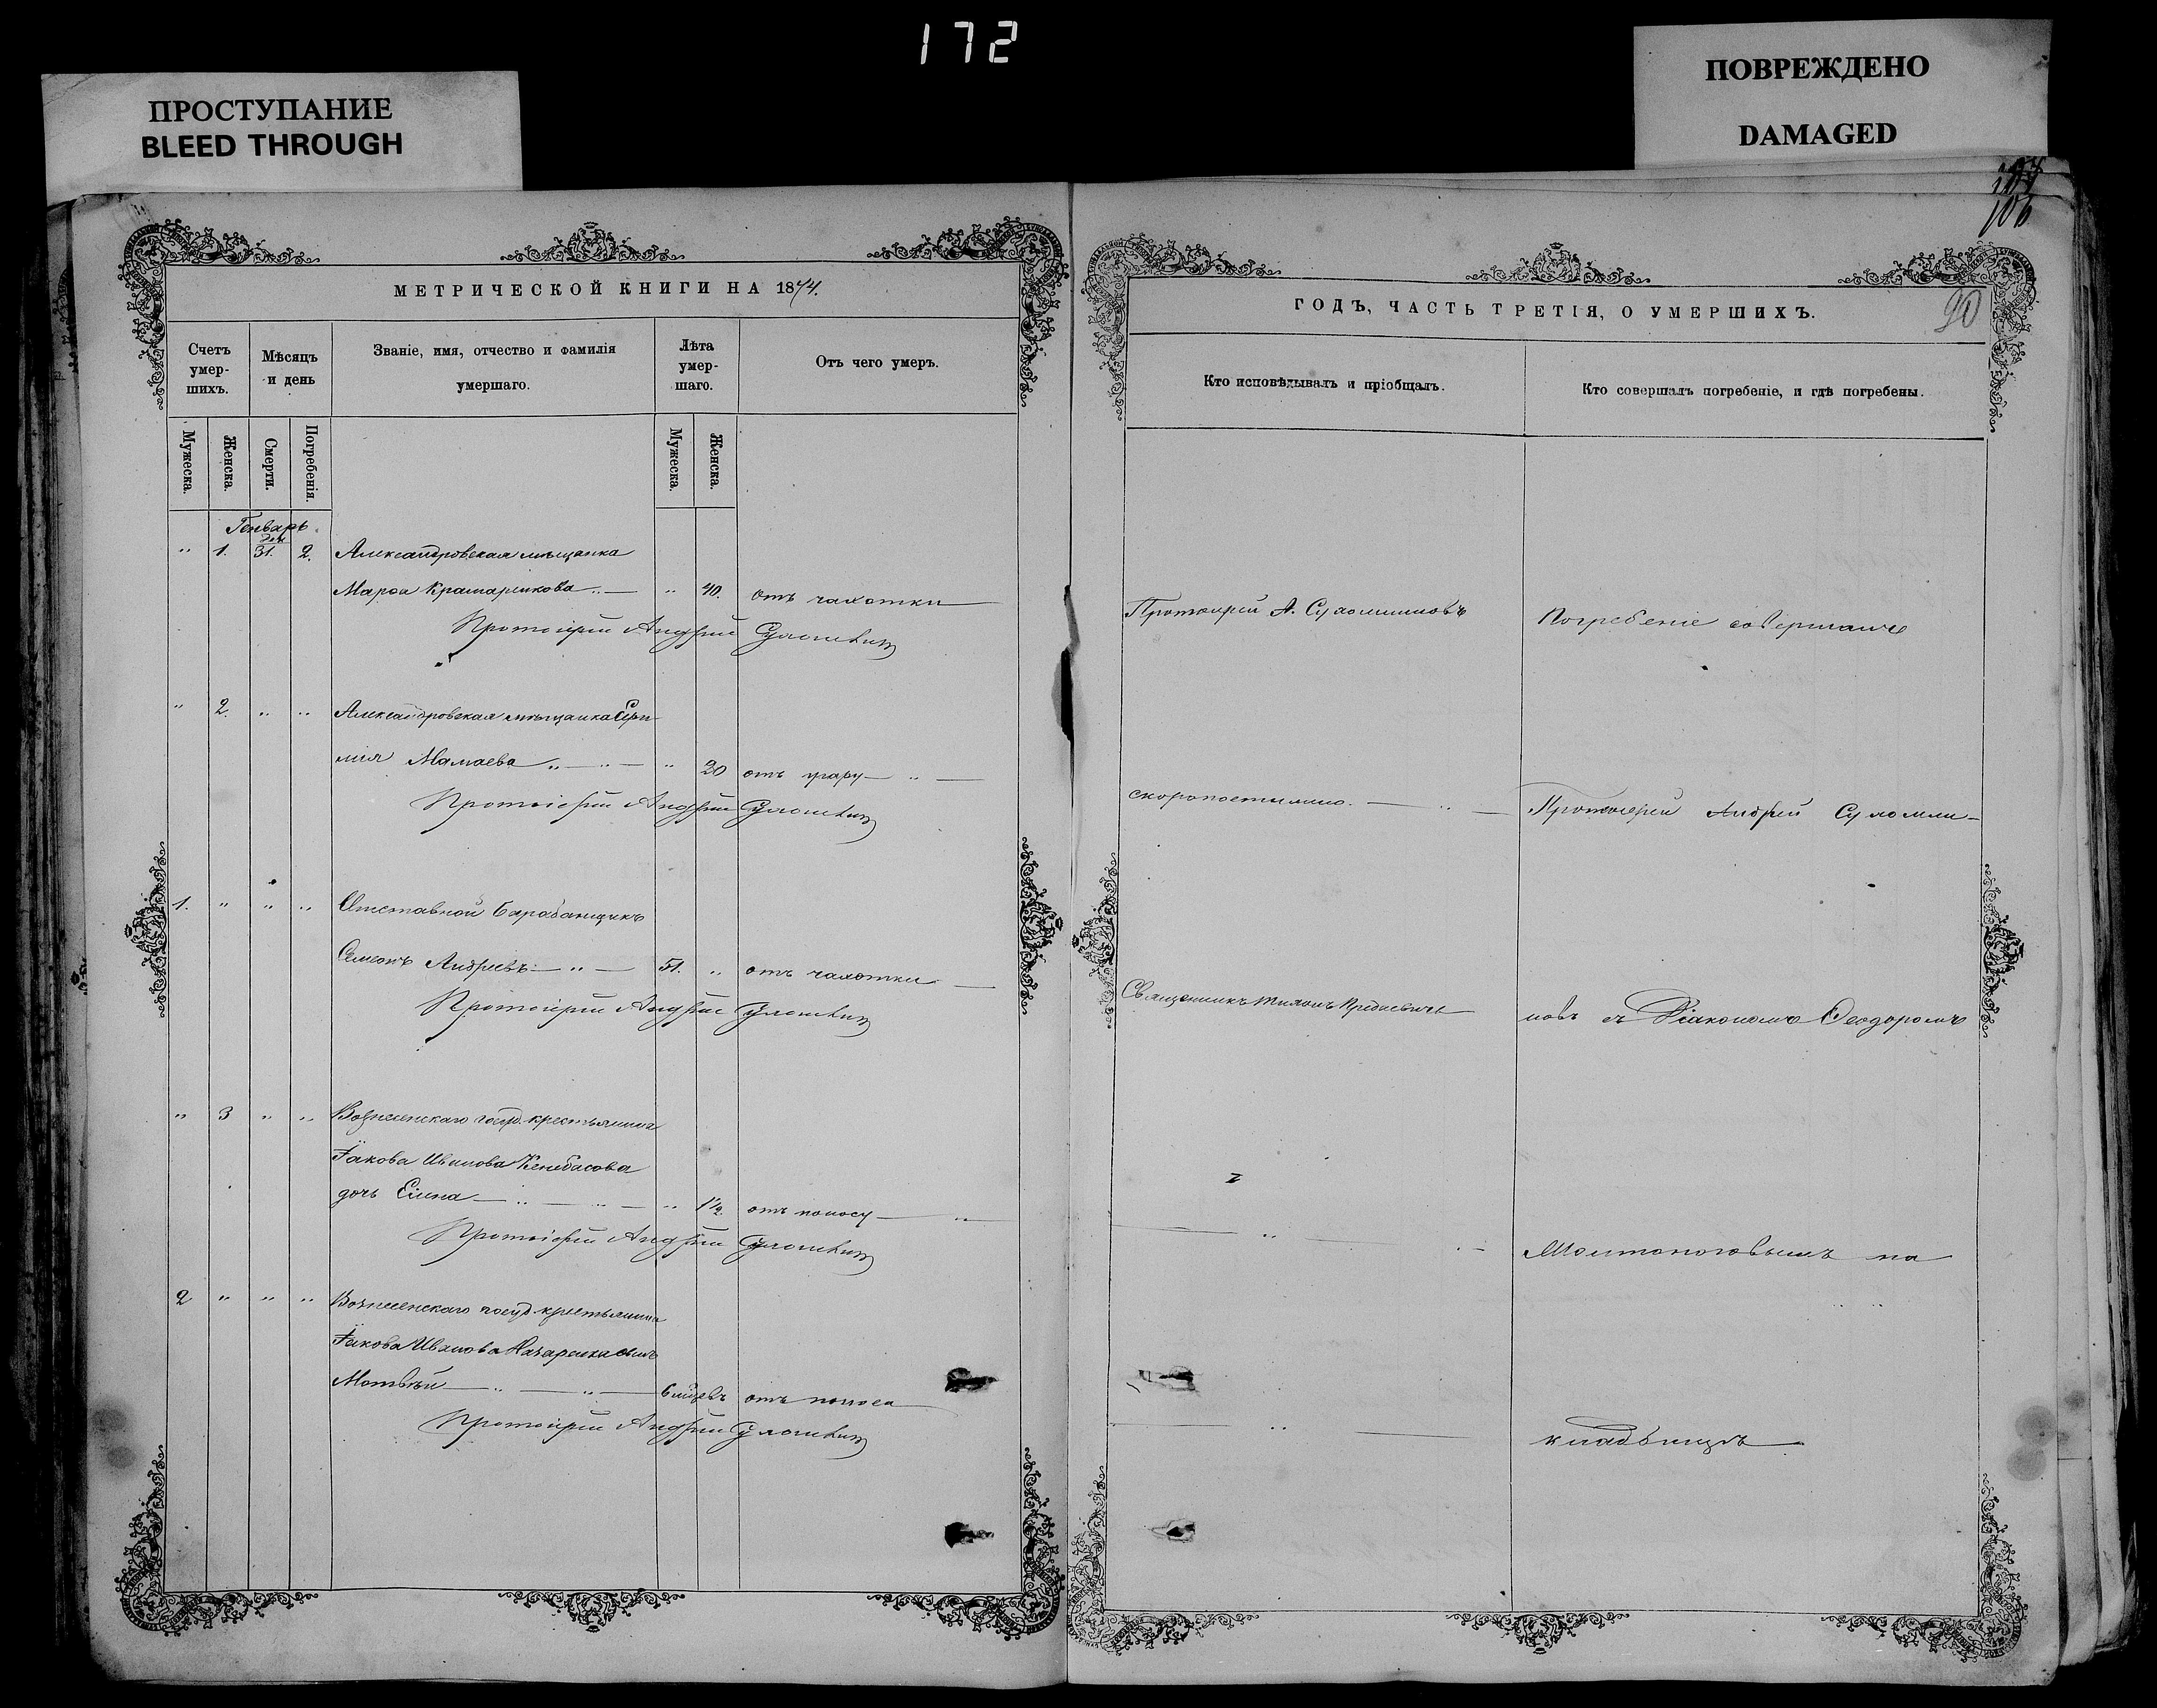 172
ПРОСТУПАНИЕ
BLEED THROUGH
ПОВРЕЖДЕНО
DAMAGED
106
МЕТРИЧЕСКОЙ КНИГИ НА 1874.
Счетъ умер-шихъ.
Мѣсяцъ и день
Званіе, имя, отчество и фамилія умершаго.
Лѣта умер-шаго.
Отъ чего умеръ.
Мужеска.
Женска.
Смерти.
Погребенія.
Мужеска.
Женска.
Генварь
" 1. 31. 2. Александровская мѣщанка
Марѳа Крамаринкова " 40. отъ чахотки
Протоіерей Андрей Сухомлинъ
" 2. " " Александровская мѣщанка
Мамаева " " " 20 отъ удару "
Протоіерей Андрей Сухомлинъ
1. " " " Отставной Барабанщикъ
Симеонъ Андреевъ " 51. " отъ чахотки
Протоіерей Андрей Сухомлинъ
" 3 " " Вознесенскаго госуд. крестьянина
Іакова Иванова
дочь Елена " " " 1 1/2. отъ поносу "
Протоіерей Андрей Сухомлинъ
2 " " " Вознесенскаго госуд. крестьянина
Іакова Иванова сынъ
Матвѣй " " 6 мцевъ отъ поноса
Протоіерей Андрей Сухомлинъ
ГОДЪ, ЧАСТЬ ТРЕТІЯ, О УМЕРШИХЪ.
90
Кто исповѣдывалъ и пріобщалъ.
Кто совершалъ погребеніе, и гдѣ погребены.
Протоіерей А. Сухомлиновъ
Погребеніе совершалъ
скоропостижно. "
Протоіерей Андрей Сухомли-
Священникъ Тихонъ
новъ съ Діакономъ Ѳеодоромъ
"
Молтоноговымъ на
"
кладбищѣ